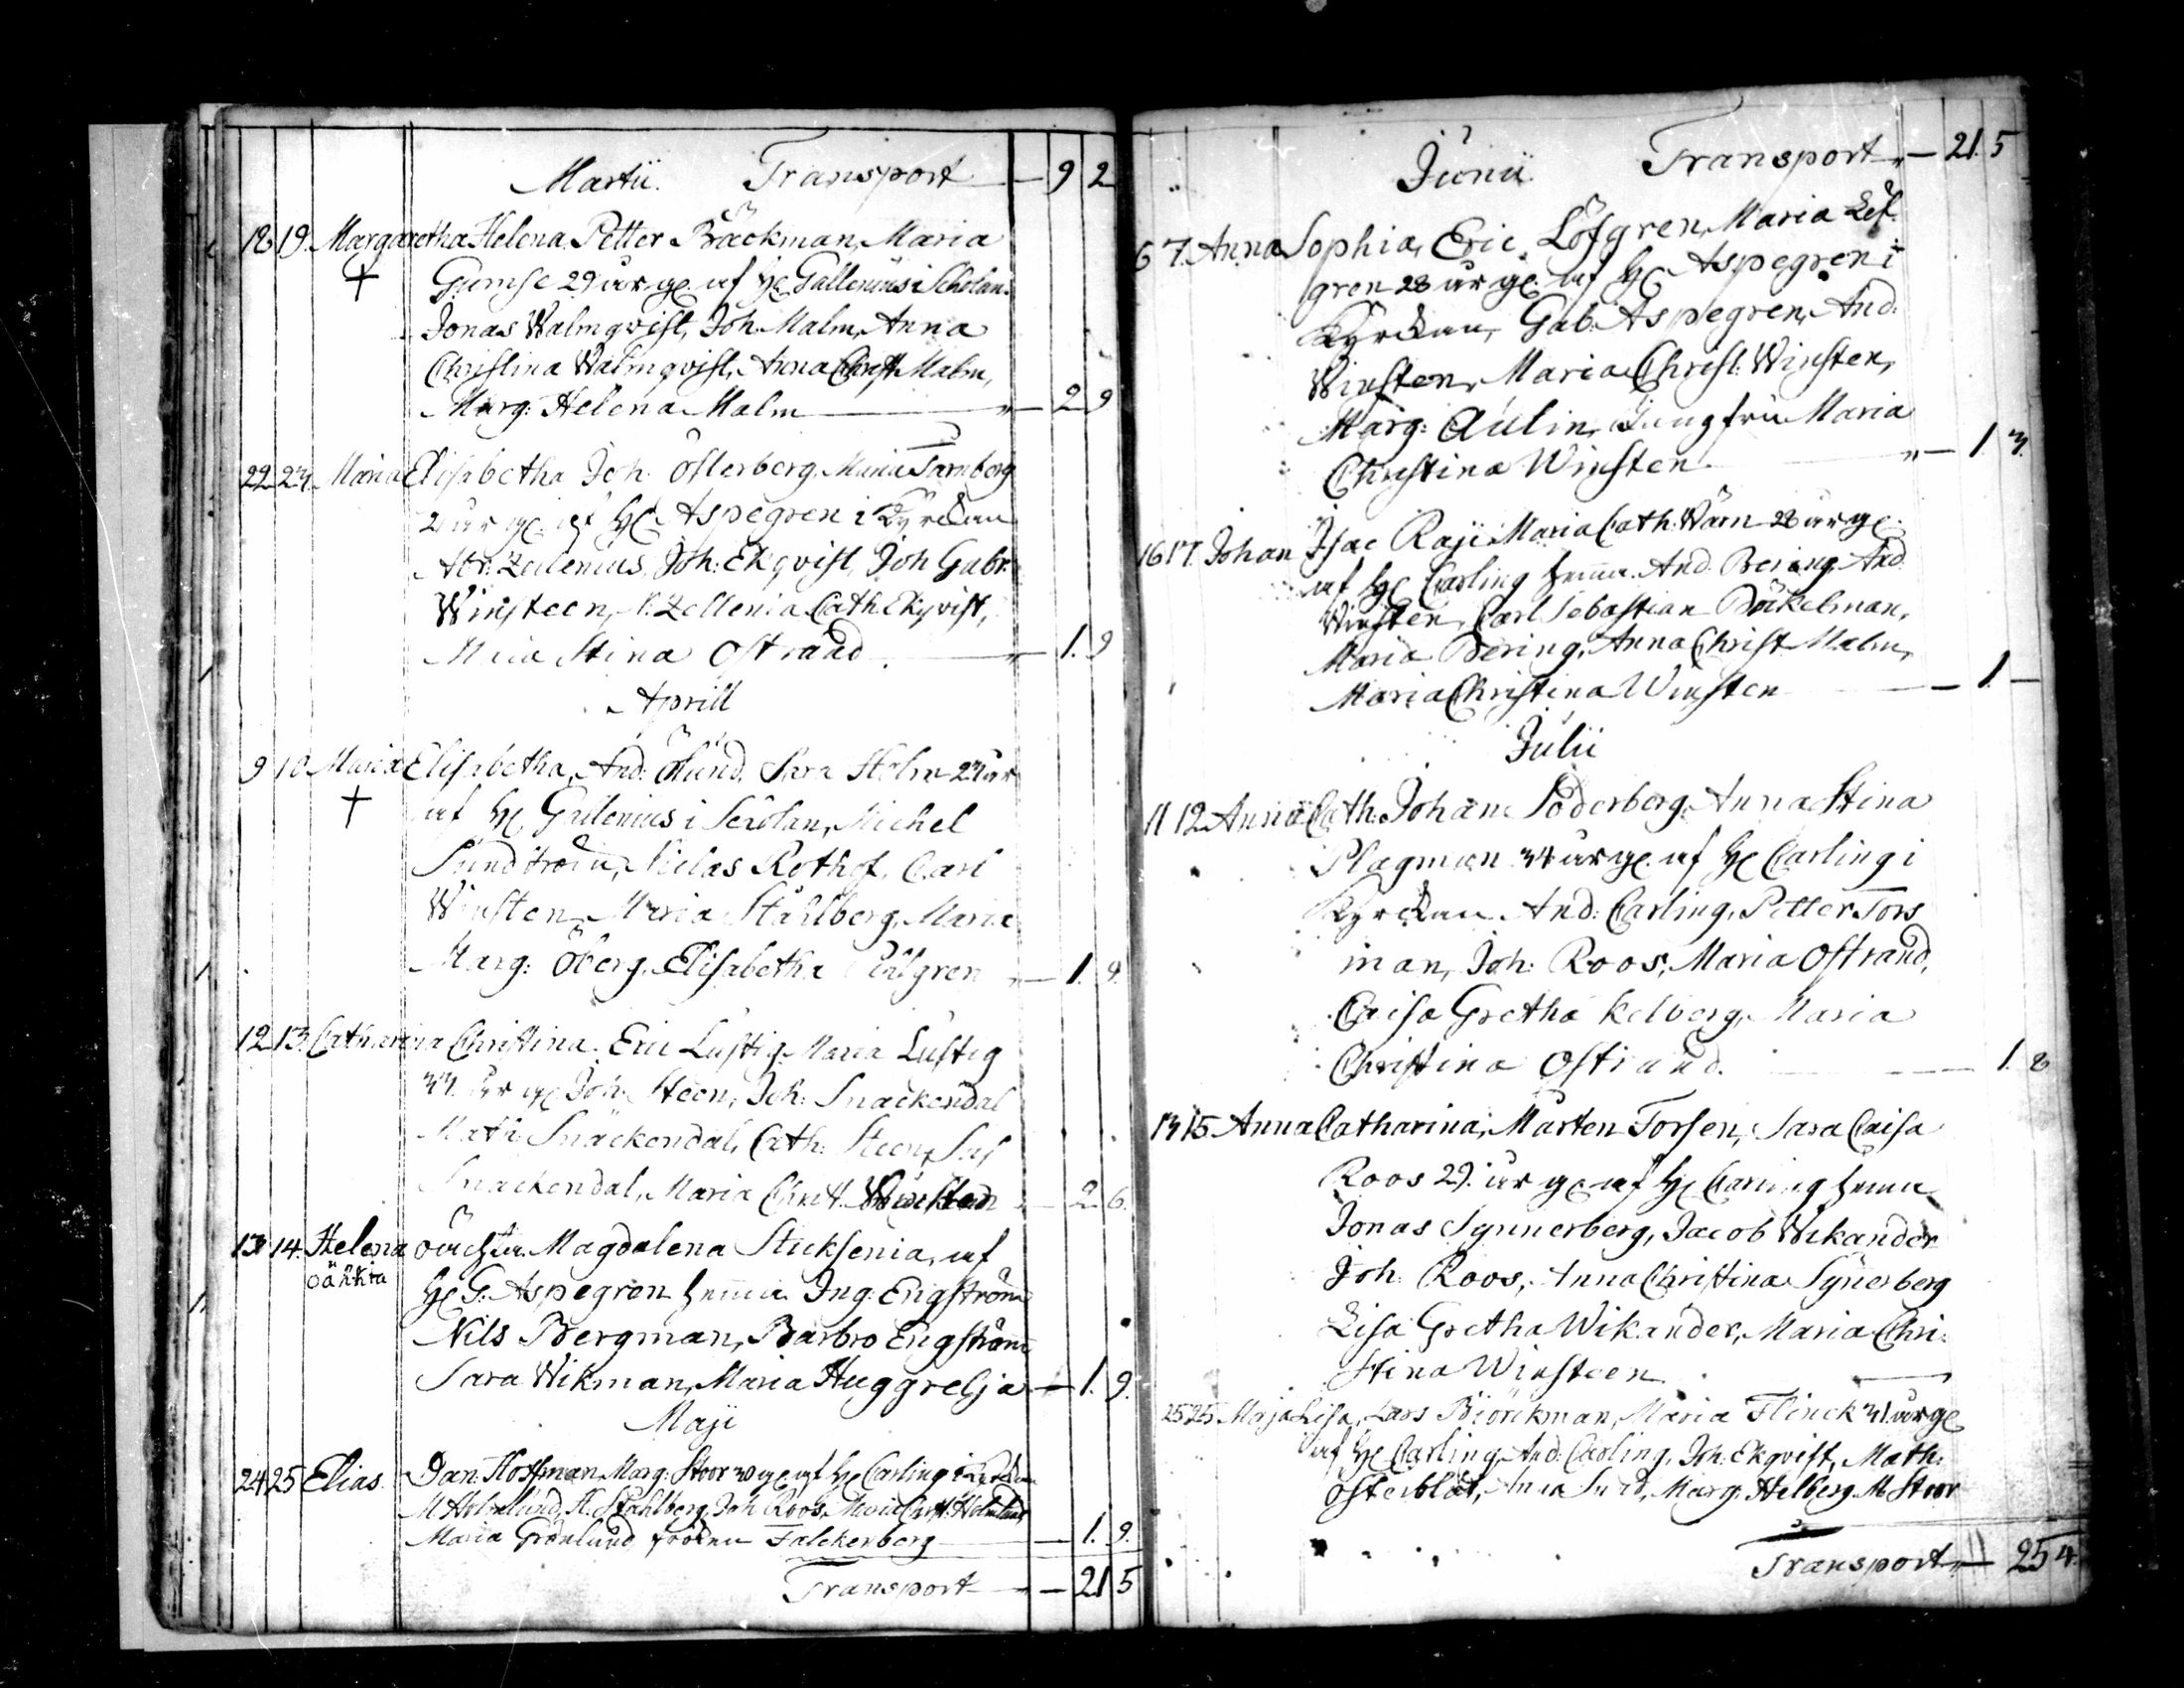 Martii. Transport — 9 2
18 19. Margaretha Helena, Petter Bäckman, Maria
† Gumse 29 år ge. af H. Gallenius i Scholan.
Jonas Walmqvist, Joh. Malm, Anna
Christina Walmqvist, Anna Christ. Malm,
Marg: Helena Malm — 2 9
22 23. Maria Elisabetha Joh. Österberg, Maria Tarnberg
år ge. af H. Aspegren i Kyrckan
Abr. Zelenius, Joh: Ekqvist, Joh Gabr.
Winsteen, Zellenia Cath. Ekqvist,
Maria Stina Ostrand — 1. 9
Aprill
9 10 Maria Elisabetha, And: Ölund, Sara Holm 23 år
† af H. Gallenius i Scolan, Michel
Sundström, Niclas Rothof, Carl
Winsten, Maria Ståhlberg, Maria
Marg: Öberg, Elisabetha — 1. 4.
12 13. Catharina Christina. Eric Lustig, Maria Lustig
33. år ge Joh. Steen, Joh: Snäckendal
Math: Snäckendal, Cath: Steen, Sus
Snäckendal, Maria Christ. — 2 6.
13 14. Helena oächta. Magdalena Sticksenia, af
oächta H. G. Aspegren hemma Ing. Engström
Nils Bergman, Barbro Engström
Sara Wikman, Maria Huggrelja — 1. 9.
Maji
24 25 Elias. Dan. Hoffman, Marg: Stoor 30 ge. af H. Carling i Kyrckan
M Holmlund, Ståhlberg, Joh Roos, Maria Christ: Holmlund
Maria Grönlund, fröken Falckerberg — 1. 9.
Transport — 21 5
Junii Transport — 21. 5
6 7. Anna Sophia, Eric Löfgren, Maria Löf
gren 28 år ge. af H. Aspegren i
Kyrckan, Gab: Aspegren, And:
Winsten, Maria Christ: Winsten,
Marg: Aulin, Jungfru Maria
Christina Winsten. — 1. 3.
16 17. Johan Isac Raji Maria Cath. Wärn 28 år ge.
af H. Carling hemma. And. Bering, And.
Winsten, Carl Sebastian Bäckelman,
Maria Bering, Anna Christ Malm,
Maria Christina Winsten — 1. —
Julii
11 12 Anna Cath: Johan Söderberg, Anna Stina
Plagman 34 år ge. af H. Carling i
Kyrckan And: Carling, Petter Tors
man, Joh: Roos, Maria Ostrand,
Caisa Gretha Kelberg, Maria
Christina Ostrand. — 1. 8
13 15 Anna Catharina, Mårten Torsen, Sara Caisa
Roos 29. år ge af H. Carling hemma
Jonas Synnerberg, Jacob Wikander
Joh: Roos, Anna Christina Synerberg
Lisa Gretha Wikander, Maria Chri:
stina Winsteen —
25 25 Maja Lisa, Lars Biörckman, Maria Flinck 31 år ge
af H. Carling, And: Carling, Joh. Ekqvist, Math:
Österblat, Anna Marg: Helberg M Stoor
Transport — 25 4.